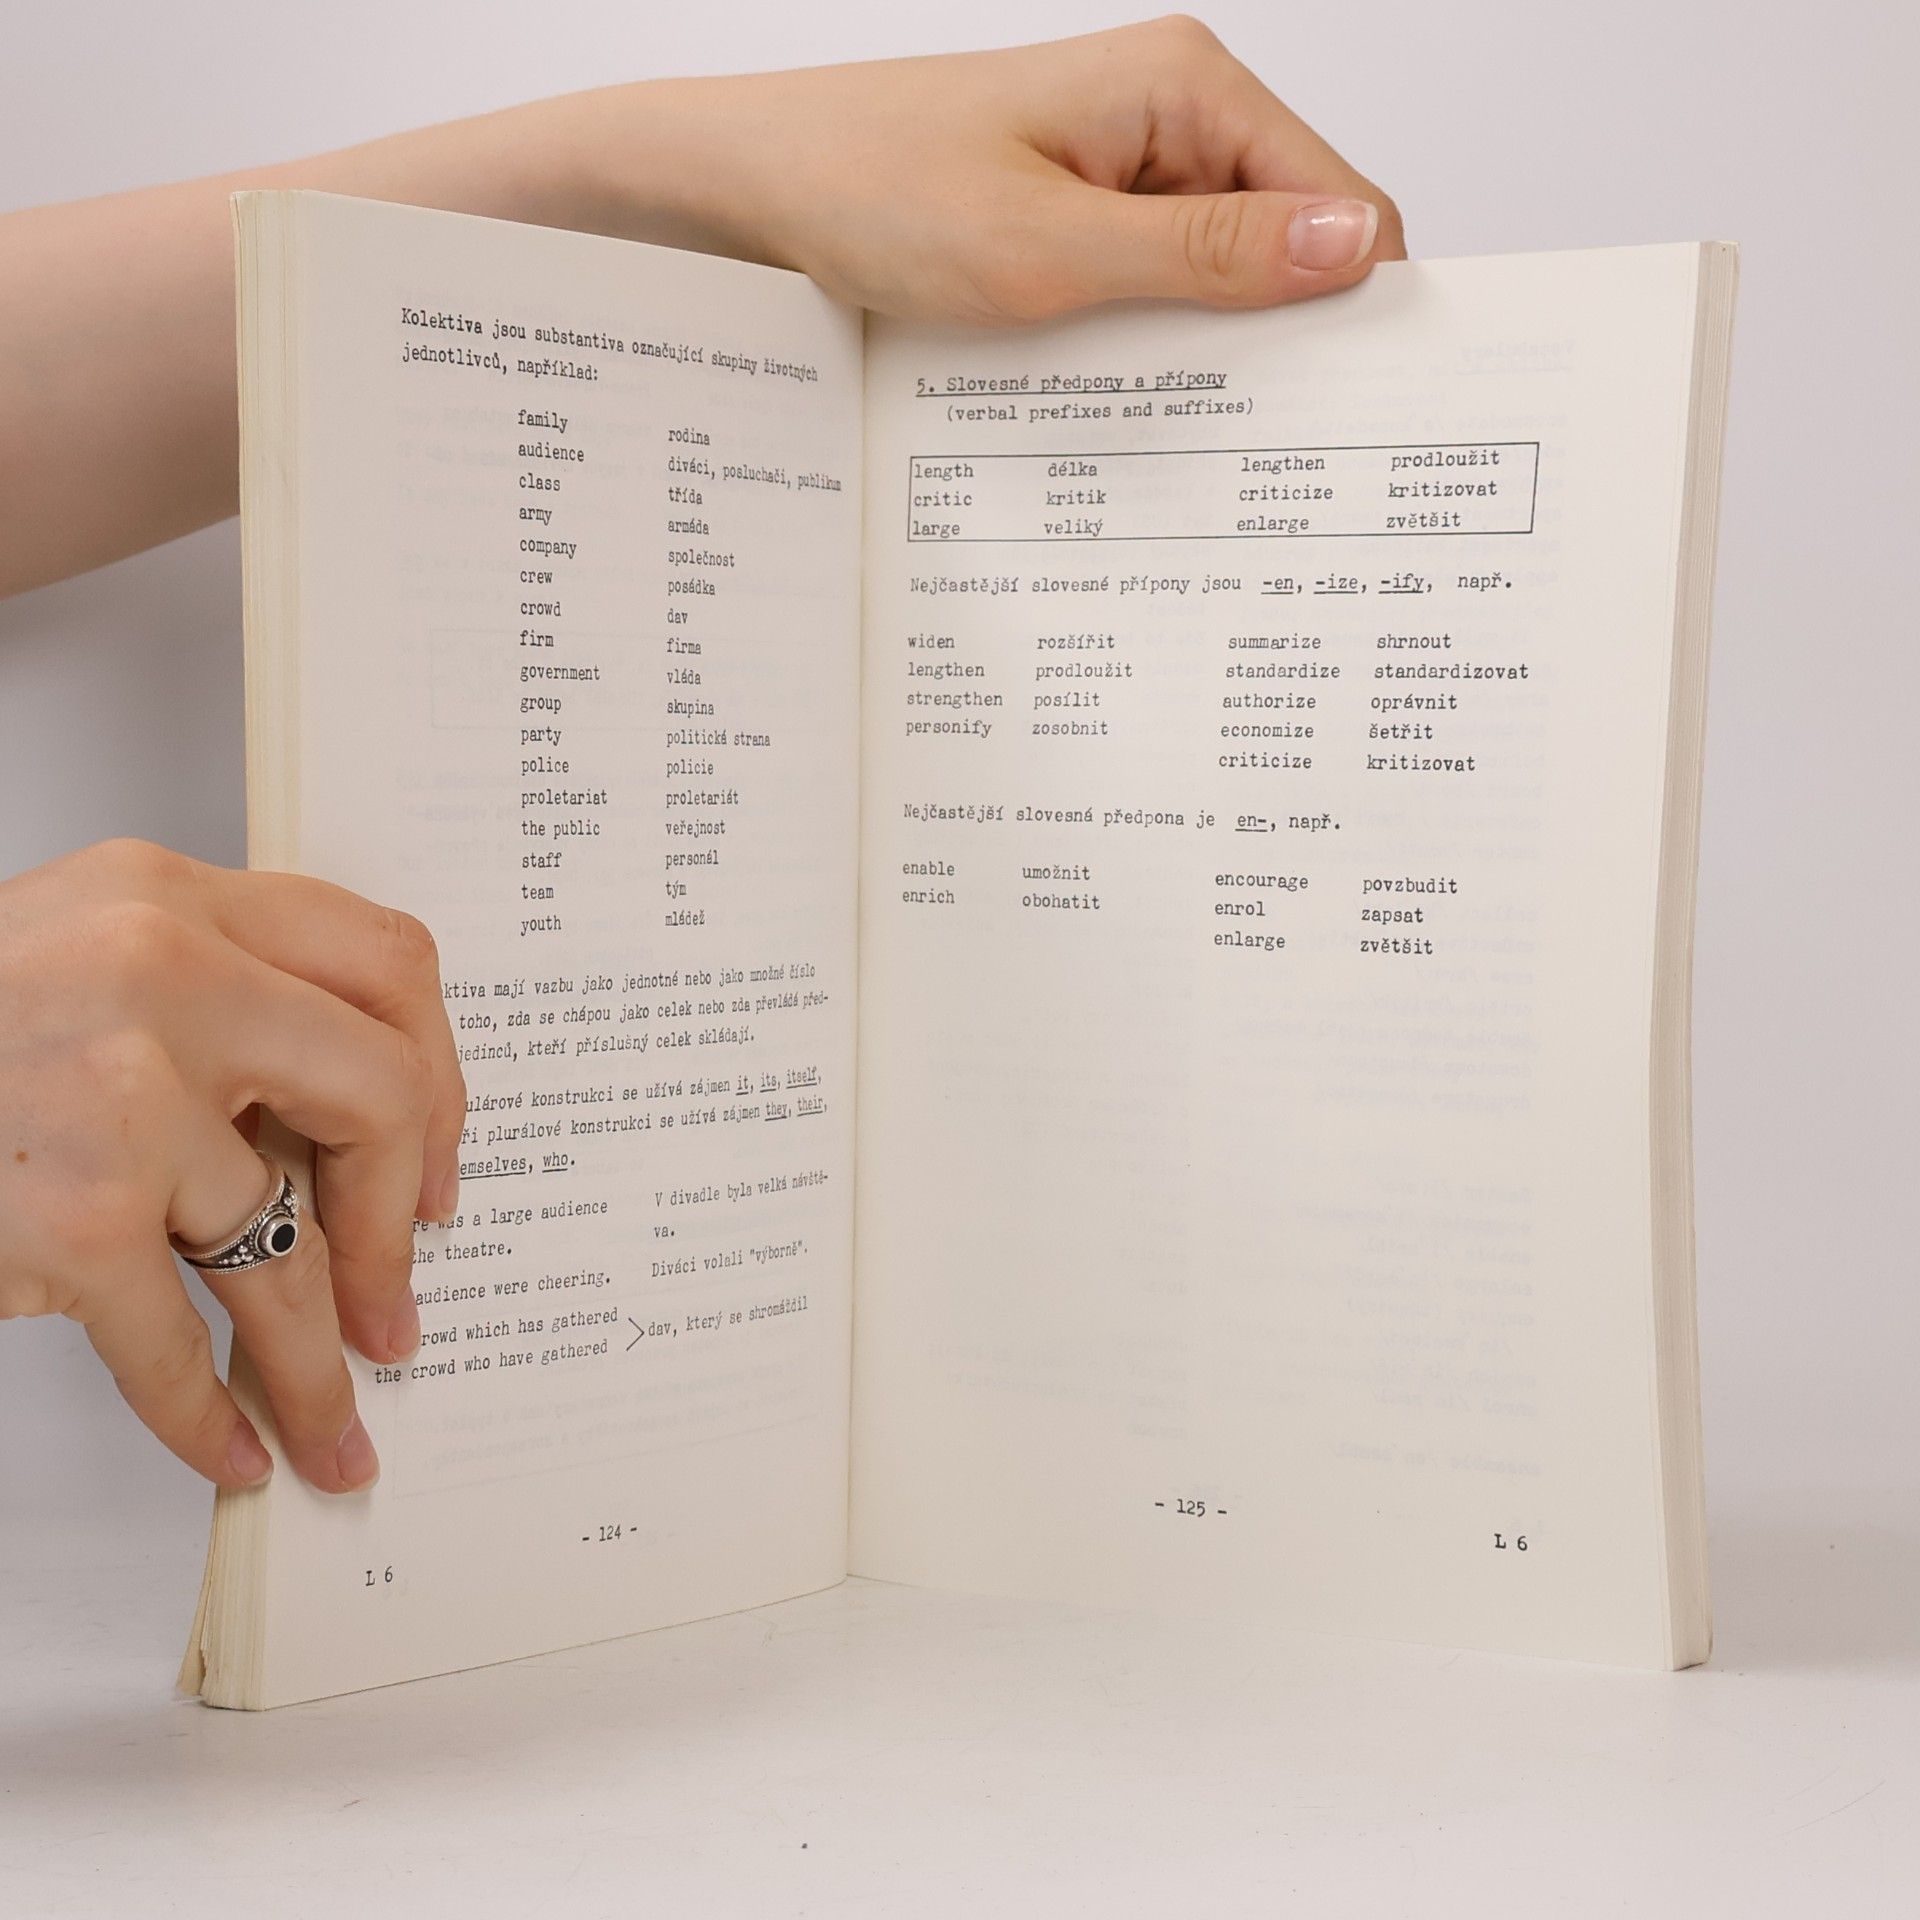 Kolektiva jsou substantiva označující skupiny životných
jednotlivců, například:
family rodina
audience diváci, posluchači, publikum
class třída
army armáda
company společnost
crew posádka
crowd dav
firm firma
government vláda
group skupina
party politická strana
police policie
proletariat proletariát
the public veřejnost
staff personál
team tým
youth mládež
mají vazbu jako jednotné nebo jako množné číslo
toho, zda se chápou jako celek nebo zda převládá před-
jedinců, kteří příslušný celek skládají.
konstrukci se užívá zájmen it, its, itself,
plurálové konstrukci se užívá zájmen they, their,
who.
was a large audience V divadle byla velká návště-
the theatre. va.
audience were cheering. Diváci volali "výborně".
which has gathered
the crowd who have gathered > dav, který se shromáždil
- 124 -
L 6
5. Slovesné předpony a přípony
(verbal prefixes and suffixes)
length délka lengthen prodloužit
critic kritik criticize kritizovat
large veliký enlarge zvětšit
Nejčastější slovesné přípony jsou -en, -ize, -ify, např.
widen rozšířit summarize shrnout
lengthen prodloužit standardize standardizovat
strengthen posílit authorize oprávnit
personify zosobnit economize šetřit
criticize kritizovat
Nejčastější slovesná předpona je en-, např.
enable umožnit encourage povzbudit
enrich obohatit enrol zapsat
enlarge zvětšit
- 125 -
L 6